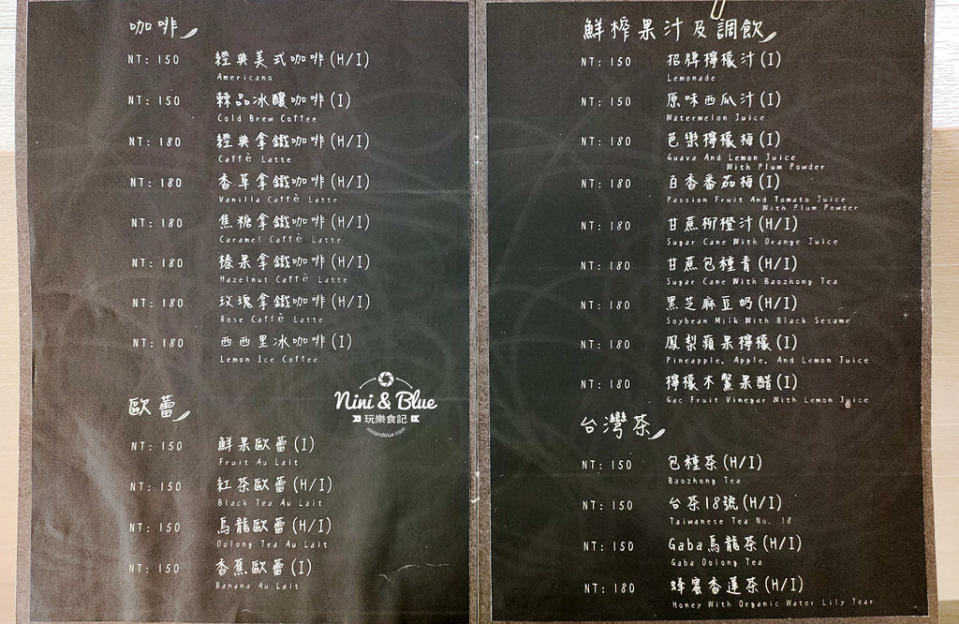 咖啡
NT: 150 經典美式咖啡(H/I)
Americano
NT: 150 棘品冰釀咖啡(I)
Cold Brew Coffee
NT: 180 經典拿鐵咖啡(H/I)
Caffè Latte
NT: 180 香草拿鐵咖啡(H/I)
Vanilla Caffè Latte
NT: 180 焦糖拿鐵咖啡(H/I)
Caramel Caffè Latte
NT: 180 榛果拿鐵咖啡(H/I)
Hazelnut Caffè Latte
NT: 180 玫瑰拿鐵咖啡(H/I)
Rose Caffè Latte
NT: 180 西西里冰咖啡(I)
Lemon Ice Coffee
歐蕾
NT: 150 鮮果歐蕾(I)
Fruit Au Lait
NT: 150 紅茶歐蕾(H/I)
Black Tea Au Lait
NT: 150 烏龍歐蕾(H/I)
Oolong Tea Au Lait
NT: 150 香蕉歐蕾(I)
Banana Au Lait
Nini & Blue
玩樂食記
niniandblue.com
鮮榨果汁及調飲
NT: 150 招牌檸檬汁(I)
Lemonade
NT: 150 原味西瓜汁(I)
Watermelon Juice
NT: 180 芭樂檸檬梅(I)
Guava And Lemon Juice
With Plum Powder
NT: 180 百香番茄梅(I)
Passion Fruit And Tomato Juice
With Plum Powder
NT: 180 甘蔗柳橙汁(H/I)
Sugar Cane With Orange Juice
NT: 180 甘蔗包種青(H/I)
Sugar Cane With Baozhong Tea
NT: 180 黑芝麻豆奶(H/I)
Soybean Milk With Black Sesame
NT: 180 鳳梨蘋果檸檬(I)
Pineapple, Apple, And Lemon Juice
NT: 180 檸檬木鱉果醋(I)
Gac Fruit Vinegar With Lemon Juice
台灣茶
NT: 150 包種茶(H/I)
Baozhong Tea
NT: 150 台茶18號(H/I)
Taiwanese Tea No. 18
NT: 150 Gaba烏龍茶(H/I)
Gaba Oolong Tea
NT: 180 蜂蜜香蓮茶(H/I)
Honey With Organic Water Lily Tear